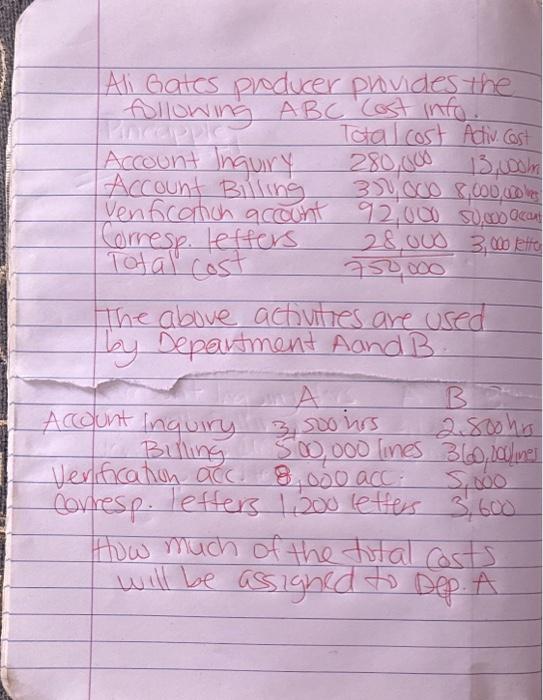 Ali Gates producer provides the
following ABC cost info.
Total cost Activ. Cost
Account Inquiry 280,000 13,000hrs
Account Billing 350,000 8,000,000 lines
Verification account 92,000 50,000 accounts
Corresp. letters 28,000 3,000 letters
Total cost 750,000
The above activities are used
by Department A and B.
A B
Account Inquiry 3,500 hrs 2,800 hrs
Billing 500,000 lines 360,200 lines
Verification acc. 8,000 acc. 5,000
Corresp. letters 1,200 letters 3,600
How much of the total costs
will be assigned to Dep. A